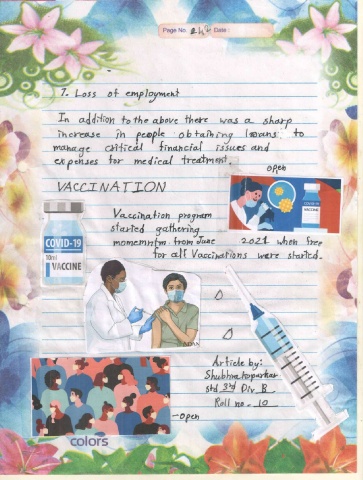 Page No. Date :
7. Loss of employment
In addition to the above there was a sharp
increase in people obtaining loans to
manage critical financial issues and
expenses for medical treatment.
open
VACCINATION
COVID-19
VACCINE
Vaccination program
started gathering
momemntm from June 2021 when free
for all Vaccinations were started.
COVID-19
10ml
VACCINE
Article by:
Shubhra
std 3rd Div B
Roll no - 10
-open
colors